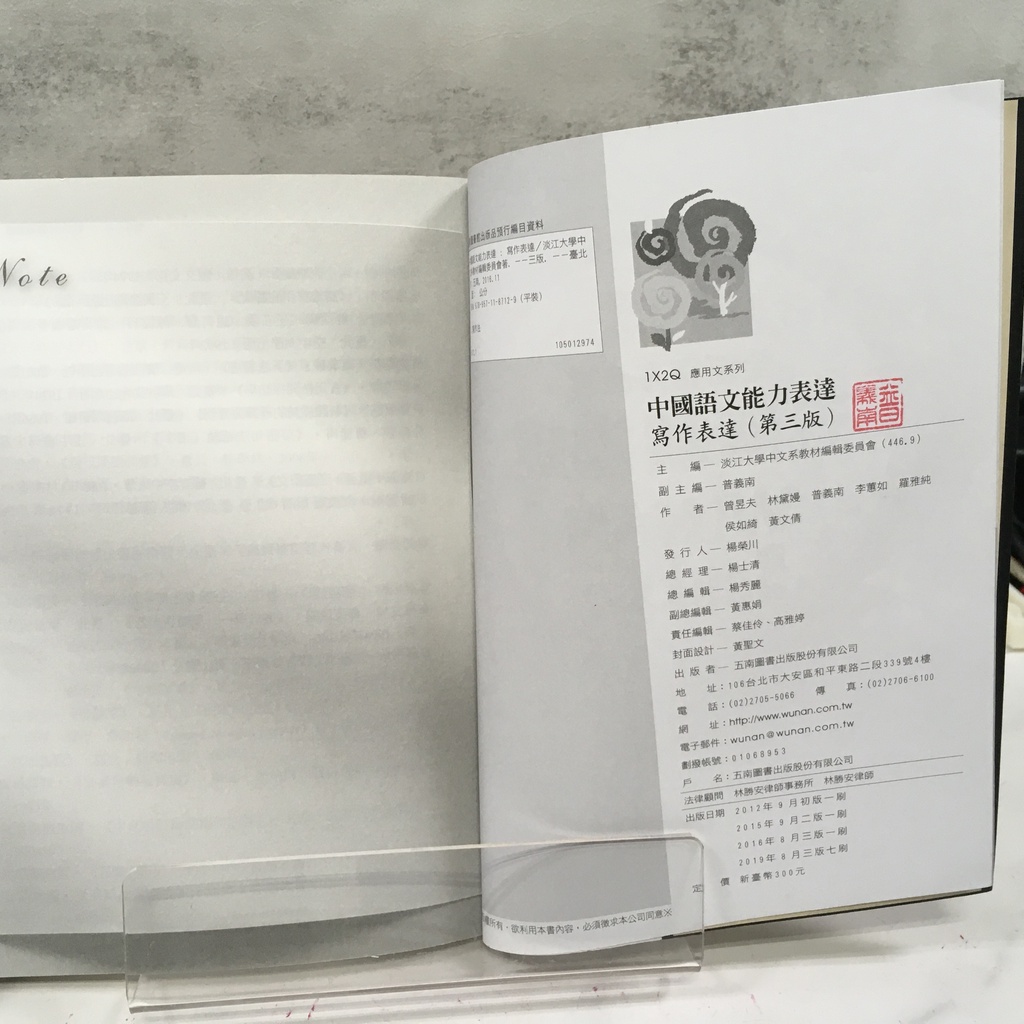 Note
出版品預行編目資料
語文能力表達：寫作表達／淡江大學中
教材編輯委員會著. －－三版. －－臺北
五南, 2016.11
公分
978-957-11-8712-9（平裝）
105012974
1X2Q 應用文系列
中國語文能力表達
寫作表達（第三版）
主 編－淡江大學中文系教材編輯委員會（446.9）
副主編－普義南
作 者－曾昱夫 林黛嫚 普義南 李蕙如 羅雅純
侯如綺 黃文倩
發行人－楊榮川
總經理－楊士清
總編輯－楊秀麗
副總編輯－黃惠娟
責任編輯－蔡佳伶、高雅婷
封面設計－黃聖文
出版者－五南圖書出版股份有限公司
地 址：106台北市大安區和平東路二段339號4樓
電 話：(02)2705-5066 傳 真：(02)2706-6100
網 址：http://www.wunan.com.tw
電子郵件：wunan@wunan.com.tw
劃撥帳號：01068953
戶 名：五南圖書出版股份有限公司
法律顧問 林勝安律師事務所 林勝安律師
出版日期 2012年 9 月初版一刷
2015年 9 月二版一刷
2016年 8 月三版一刷
2019年 8 月三版七刷
定 價 新臺幣300元
權所有．欲利用本書內容，必須徵求本公司同意※